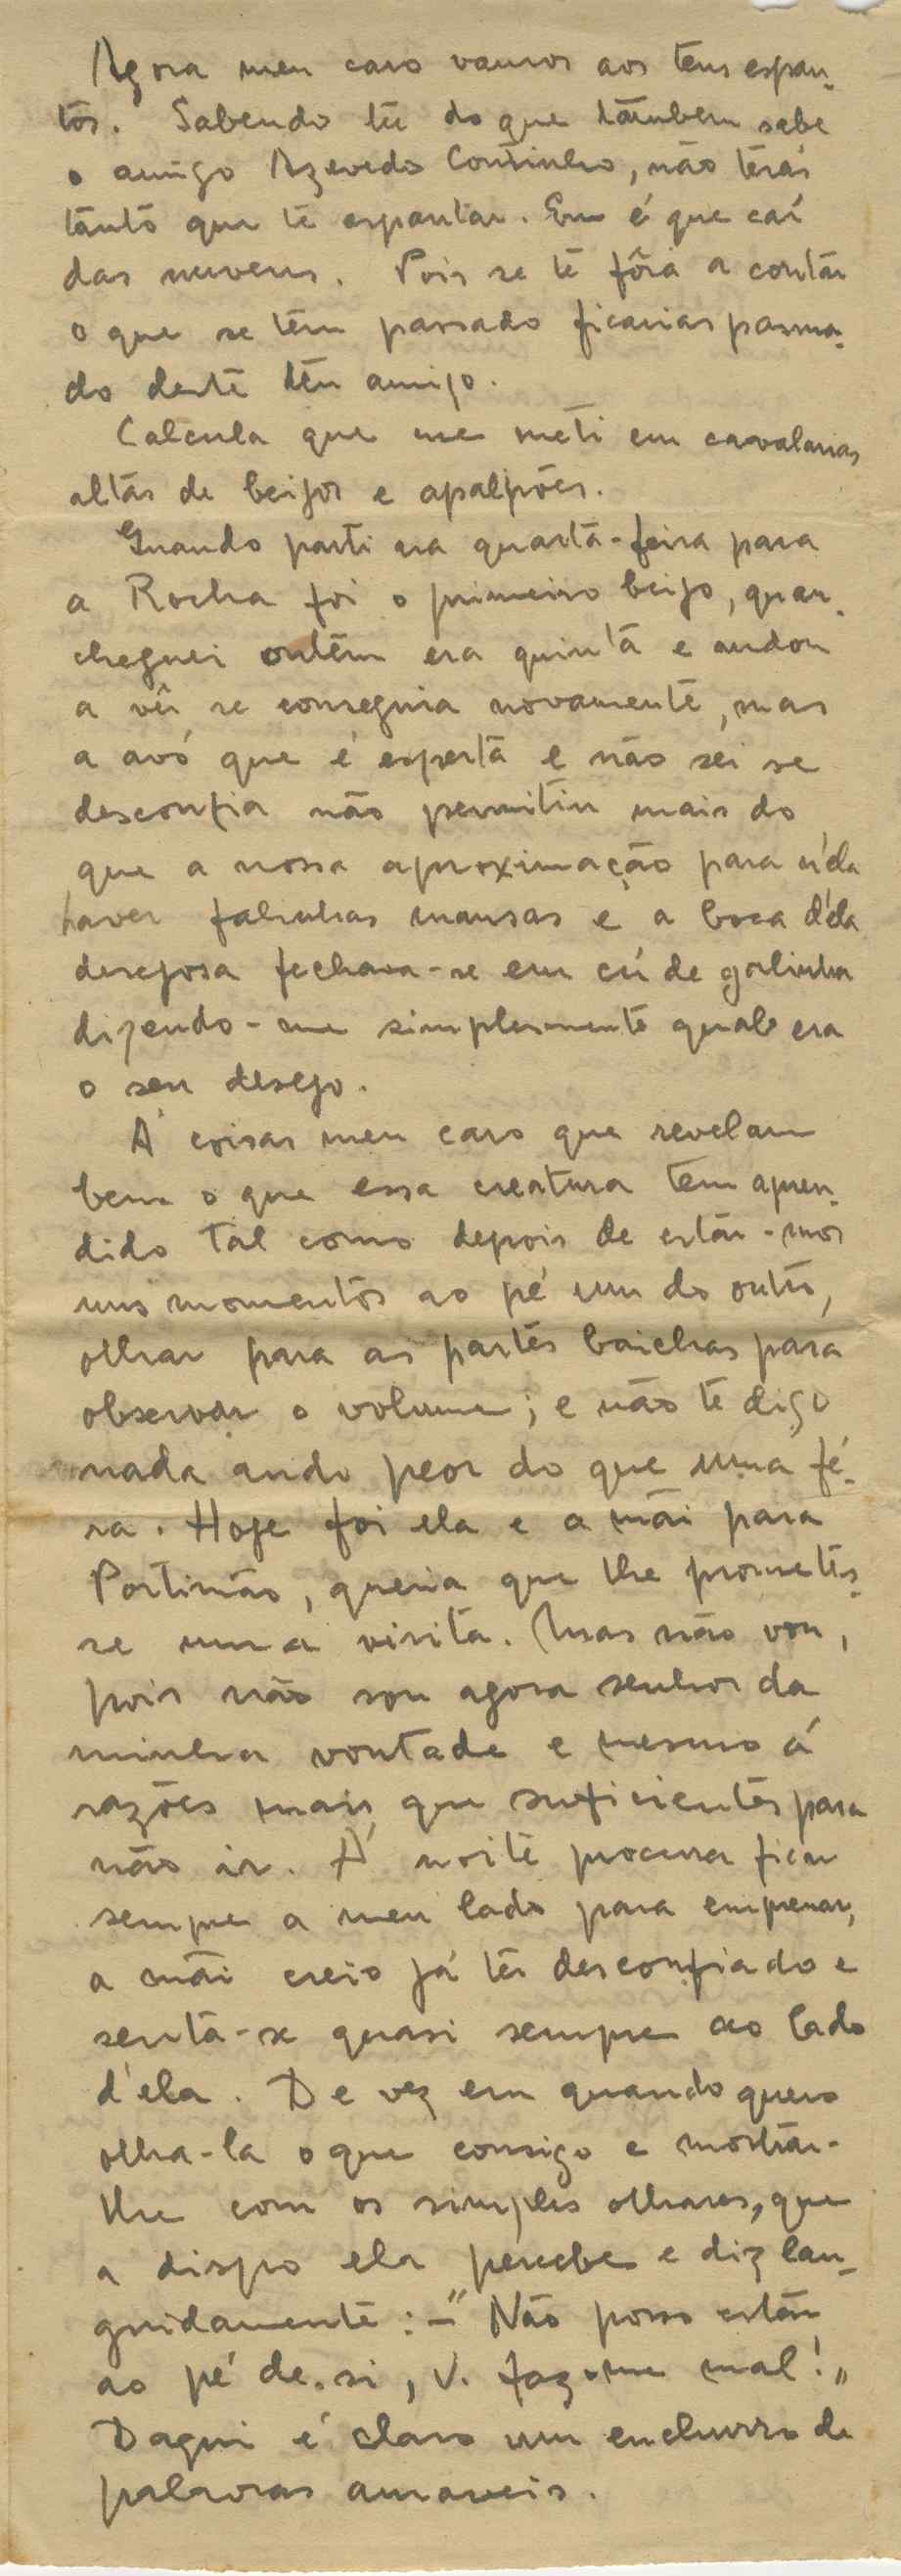 Agora meu caro vamos aos teus espan-
tos. Sabendo tu do que também sabe
o amigo Azevedo Coutinho, não terás
tanto que te espantar. Eu é que caí
das nuvens. Pois se te fôra a contar
o que se tem passado ficarias pasma-
do deste teu amigo.
Calcula que me meti em cavalarias
altas de beijos e apalpões.
Quando parti era quarta-feira para
a Rocha foi o primeiro beijo, quan-
cheguei ontem era quinta e andou
a vêr se conseguia novamente, mas
a avó que é esperta e não sei se
desconfia não permitiu mais do
que a nossa aproximação para
haver falinhas mansas e a boca d'ela
desejosa fechava-se em cú de galinha
dizendo-me simplesmente qual era
o seu desejo.
Á coisas meu caro que revelam
bem o que essa creatura tem apren-
dido tal como depois de estar-mos
uns momentos ao pé um do outro,
olhar para as partes baichas para
observar o volume; e não te digo
nada ando peor do que uma fé-
ra. Hoje foi ela e a mãi para
Portimão, queria que lhe prometes-
se uma visita. Mas não vou,
pois não sou agora senhor da
minha vontade e mesmo á
razões mais que suficientes para
não ir. Á noite procura ficar
sempre a meu lado para
a mãi creio já ter desconfiado e
senta-se quasi sempre ao lado
d'ela. De vez em quando quero
olha-la o que consigo e mostrar-
lhe com os simples olhares, que
a dispo ela percebe e diz lan-
guidamente: - "Não posso estar
ao pé de si, V. faz-me mal!"
Daqui é claro um enchurro de
palavras amaveis.